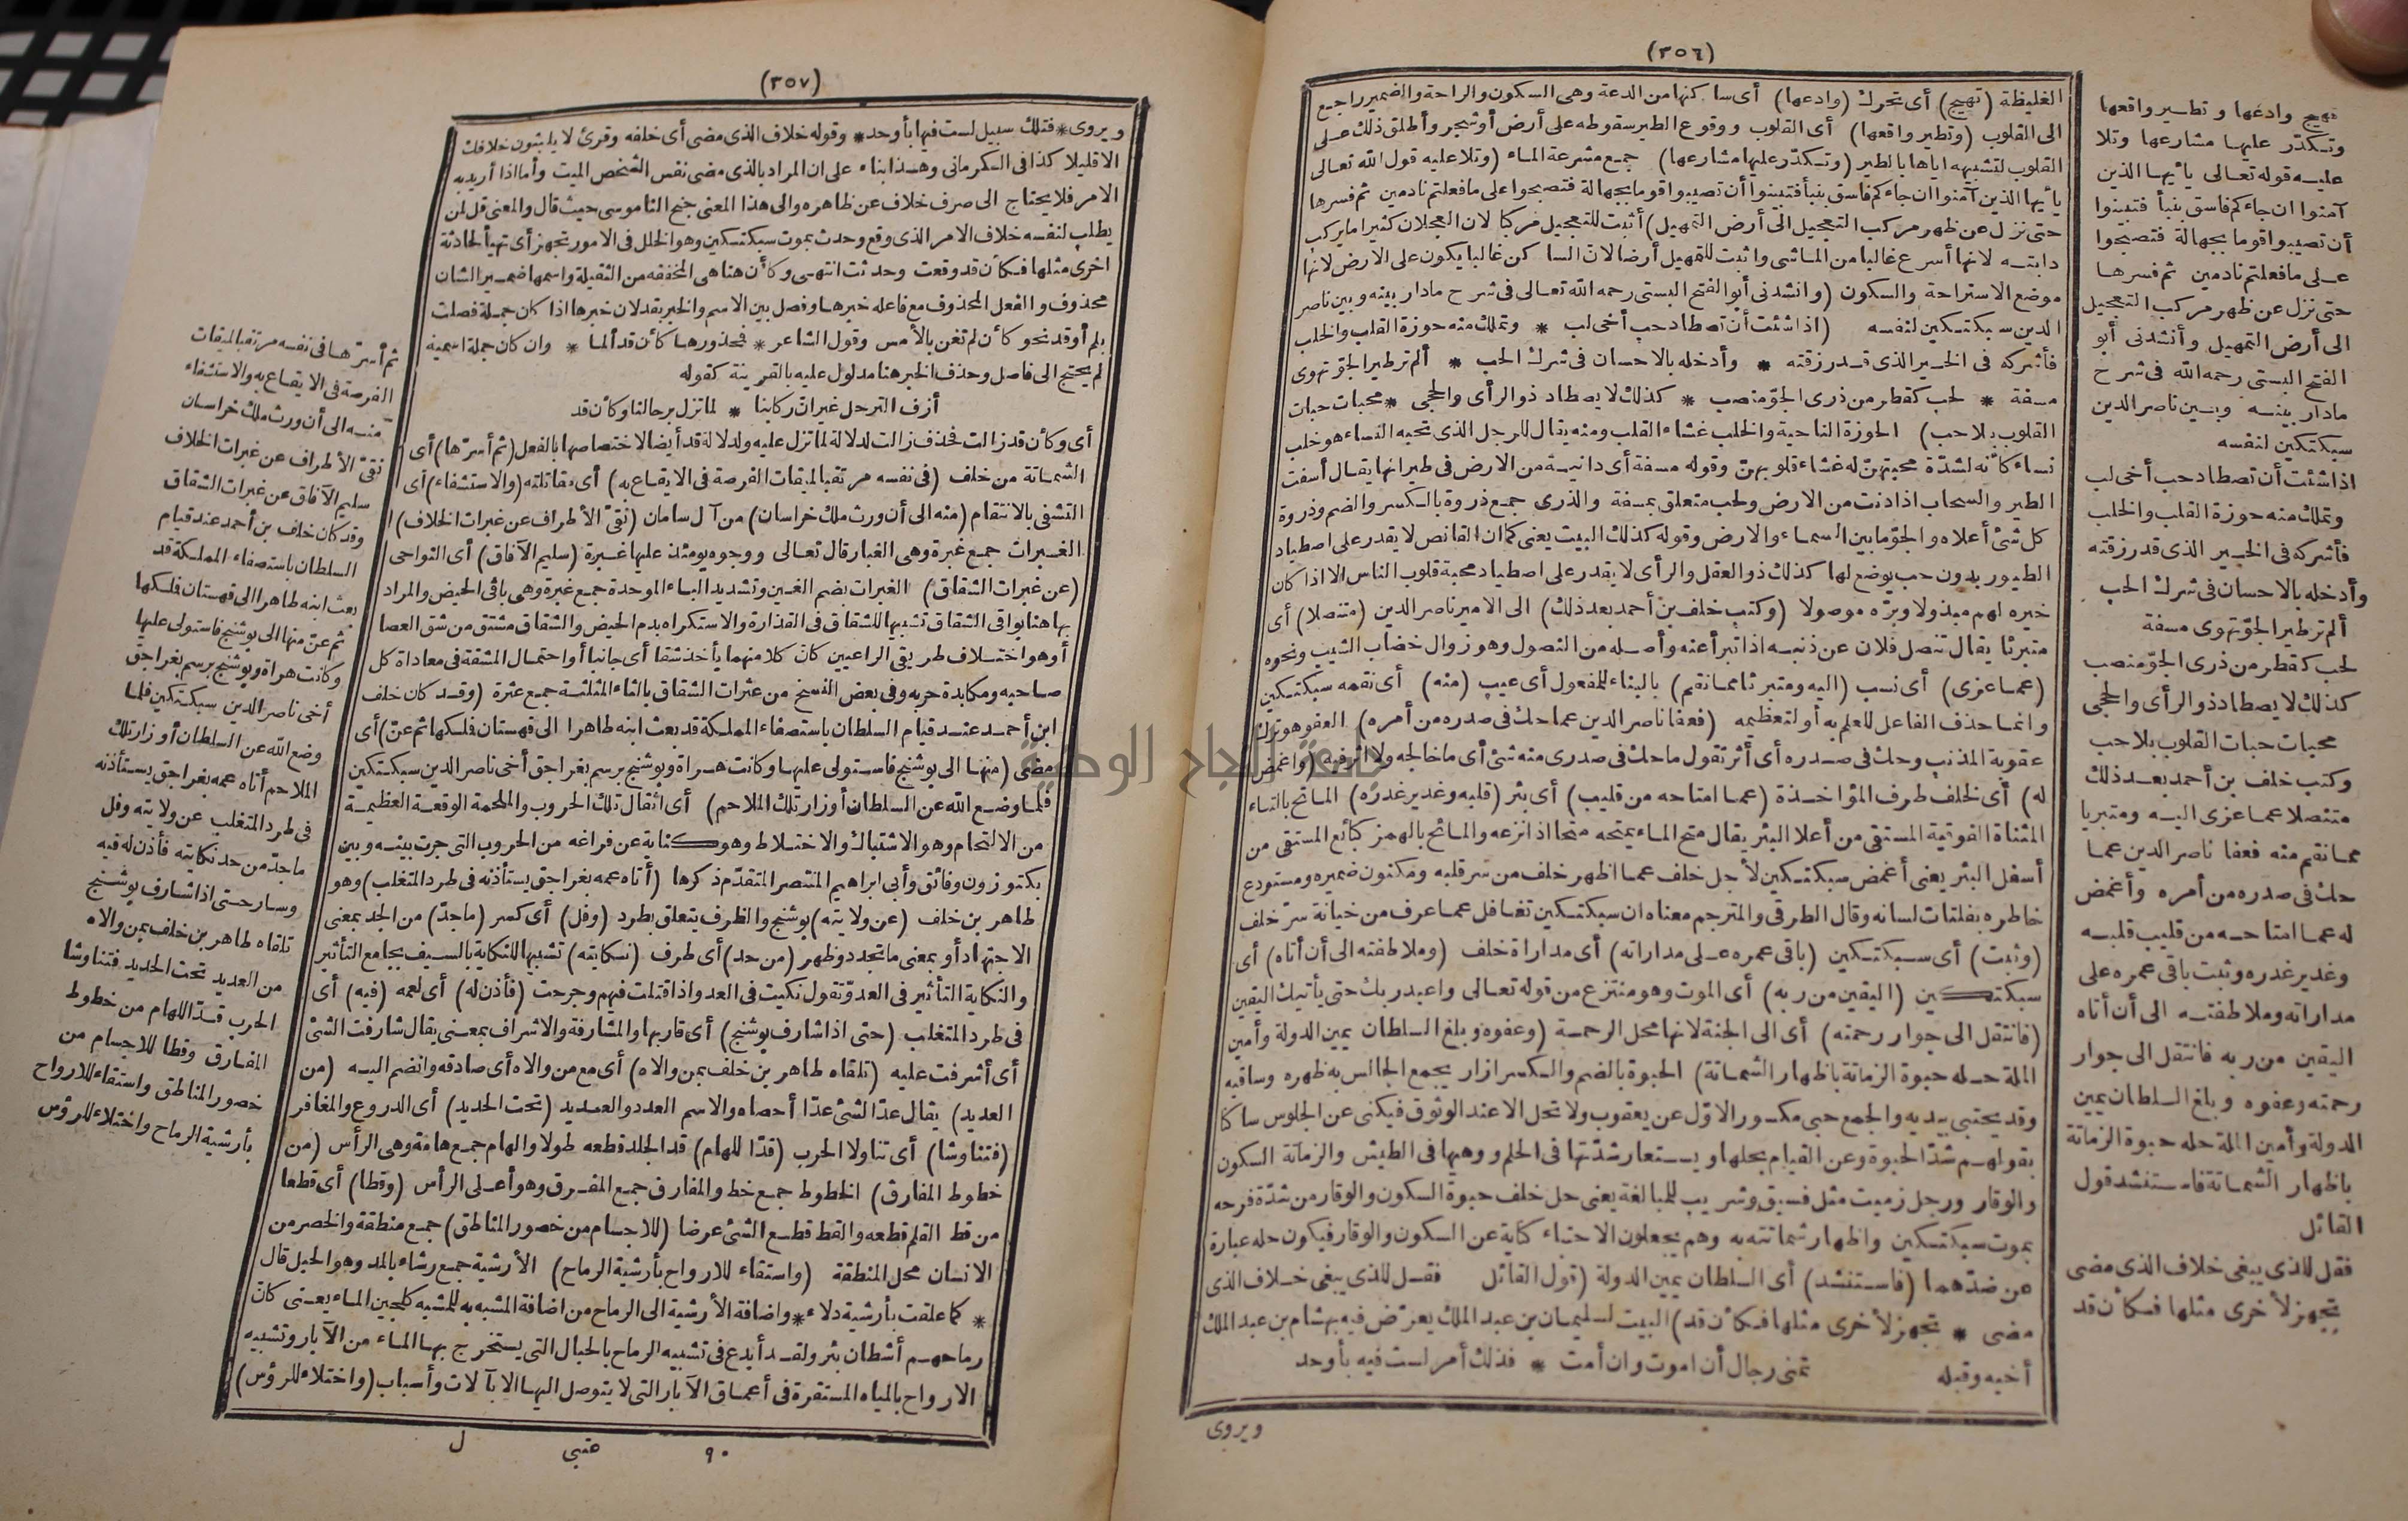 (٣٥٦)
الغليظة (تهيج) أى تحرك (وادعها) أى سا كنها من الدعة وهى السكون والراحة والضمير راجع
الى القلوب (وتطير واقعها) أى القلوب ووقوع الطير سقوطه على أرض أو شجر وأطلق ذلك على
القلوب لتشبيهه اياها بالطير (وتكدّر عليها مشارعها) جمع مشرعة الماء (وتلا عليه قول الله تعالى
يا أيها الذين آمنوا ان جاءكم فاسق بنبأ فتبينوا أن تصيبوا قوما بجهالة فتصبحوا على ما فعلتم نادمين ثم فسرها
حتى نزل عن ظهر مركب التعجيل الى أرض التمهيل) أثبت للتعجيل مركبا لان العجلان كثيرا ما يركب
دابته لانها أسرع غالبا من الماشى واثبت للتمهيل أرضا لان السا كن غالبا يكون على الارض لانها
موضع الاستراحة والسكون (وانشدنى أبو الفتح البستى رحمه الله تعالى فى شرح مادار بينه وبين ناصر
الدين سبكتكين لنفسه (اذا شئت أن تصطاد حب أخى لب * وتملك منه حوزة القلب والخلب
فأشركه فى الخير الذى قد رزقته * وأدخله بالاحسان فى شرك الحب * ألم تر طير الجوّ تهوى
مسفة * لحب كقطر من ذرى الجوّ منصب * كذلك لا يصطاد ذو الرأى والحجى * محبات حبات
القلوب بلا حب) الحوزة الناحية والخلب غشاء القلب ومنه يقال للرجل الذى تحبه النساء هو خلب
نساء كأنه لشدّة محبتهنّ له غشاء قلوبهنّ وقوله مسفة أى دانية من الارض فى طيرانها يقال أسفت
الطير والسحاب اذا دنت من الارض ولحب متعلق بمسفة والذرى جمع ذروة بالكسر والضم وذروة
كل شئ أعلاه والجوّ ما بين السماء والارض وقوله كذلك البيت يعنى كما ان القانص لا يقدر على اصطياد
الطيور بدون حب يوضع لها كذلك ذو العقل والرأى لا يقدر على اصطياد محبة قلوب الناس الا اذا كان
خيره لهم مبذولا وبرّه موصولا (وكتب خلف بن أحمد بعد ذلك) الى الامير ناصر الدين (متنصلا) أى
متبرئا يقال تنصل فلان عن ذنبه اذا تبرأ عنه وأصله من النصول وهو زوال خضاب الشيب ونحوه
(عما عزى) أى نسب (اليه ومتبرئا مما نقم) بالبناء للمفعول أى عيب (منه) أى نقمه سبكتكين
وانما حذف الفاعل للعلم به أو لتعظيمه (فعفا ناصر الدين عما حك فى صدره من أمره) العفو هو ترك
عقوبة المذنب وحك فى صدره أى أثر تقول ما حك فى صدرى منه شئ أى ما خالجه ولا أثر فيه (وأغمض
له) أى لخلف طرف المؤاخذة (عما امتاحه من قليب) أى بئر (قلبه وغدير غدره) الماتح بالتاء
المثناة الفوقية المستقى من أعلا البئر يقال متح الماء يمتحه متحا اذا نزعه والمائح بالهمز كبائع المستقى من
أسفل البئر يعنى أغمض سبكتكين لأجل خلف عما اظهر خلف من سر قلبه ومكنون ضميره ومستودع
خاطره بفلتات لسانه وقال الطرقى والمترجم معناه ان سبكتكين تغافل عما عرف من خيانة سرّ خلف
(وثبت) أى سبكتكين (باقى عمره على مداراته) أى مداراة خلف (وملاطفته الى أن أتاه) أى
سبكتكين (اليقين من ربه) أى الموت وهو منتزع من قوله تعالى واعبد ربك حتى يأتيك اليقين
(فانتقل الى جوار رحمته) أى الى الجنة لانها محل الرحمة (وعفوه وبلغ السلطان يمين الدولة وأمين
الملة حله حبوة الزماتة باظهار الشماتة) الحبوة بالضم والكسر ازار يجمع الجالس به ظهره وساقيه
وقد يحتبى بيديه والجمع حبى مكسور الاوّل عن يعقوب ولا تحل الاعند الوثوق فيكنى عن الجلوس ساكنا
بقولهم شدّ الحبوة وعن القيام بحلها ويستعار شدّتها فى الحلم ووهيها فى الطيش والزماتة السكون
والوقار ورجل زميت مثل فسيق وشريب للمبالغة يعنى حل خلف حبوة السكون والوقار من شدّة فرحه
بموت سبكتكين واظهار شماتته به وهم يجعلون الاحتباء كناية عن السكون والوقار فيكون حله عبارة
عن ضدّهما (فاستنشد) أى السلطان يمين الدولة (قول القائل فقل للذى يبغى خلاف الذى
مضى * تجهز لأخرى مثلها فكأن قد) البيت لسليمان بن عبد الملك يعرّض فيه بهشام بن عبد الملك
أخيه وقبله تمنى رجال أن اموت وان أمت * فذلك أمر لست فيه بأوحد
ويروى
تهيج وادعها وتطير واقعها
وتكدّر عليها مشارعها وتلا
عليه قوله تعالى يا أيها الذين
آمنوا ان جاءكم فاسق بنبأ فتبينوا
أن تصيبوا قوما بجهالة فتصبحوا
على ما فعلتم نادمين ثم فسرها
حتى نزل عن ظهر مركب التعجيل
الى أرض التمهيل وأنشدنى أبو
الفتح البستى رحمه الله فى شرح
مادار بينه وبين ناصر الدين
سبكتكين لنفسه
اذا شئت أن تصطاد حب أخى لب
وتملك منه حوزة القلب والخلب
فأشركه فى الخير الذى قد رزقته
وأدخله بالاحسان فى شرك الحب
ألم تر طير الجوّ تهوى مسفة
لحب كقطر من ذرى الجوّ منصب
كذلك لا يصطاد ذو الرأى والحجى
محبات حبات القلوب بلا حب
وكتب خلف بن أحمد بعد ذلك
متنصلا عما عزى اليه ومتبريا
عما نقم منه فعفا ناصر الدين عما
حك فى صدره من أمره وأغمض
له عما امتاحه من قليب قلبه
وغدير غدره وثبت باقى عمره على
مداراته وملاطفته الى أن أتاه
اليقين من ربه فانتقل الى جوار
رحمته وعفوه وبلغ السلطان يمين
الدولة وأمين الملة حله حبوة الزماتة
باظهار الشماتة فاستنشد قول
القائل
فقل للذى يبغى خلاف الذى مضى
تجهز لأخرى مثلها فكأن قد
(٣٥٧)
ويروى * فتلك سبيل لست فيها بأوحد * وقوله خلاف الذى مضى أى خلفه وقرئ لا يلبثون خلافك
الا قليلا كذا فى الكرمانى وهذا بناء على ان المراد بالذى مضى نفس الشخص الميت وأما اذا أريد به
الامر فلا يحتاج الى صرف خلاف عن ظاهره والى هذا المعنى جنح الناموسى حيث قال والمعنى قل لمن
يطلب لنفسه خلاف الامر الذى وقع وحدث بموت سبكتكين وهو الخلل فى الامور تجهز أى تهيأ لحادثة
اخرى مثلها فكأن قد وقعت وحدثت انتهى وكأن هنا هى المخففة من الثقيلة واسمها ضمير الشان
محذوف والفعل المحذوف مع فاعله خبرها وفصل بين الاسم والخبر بقد لان خبرها اذا كان جملة فصلت
بلم أو قد نحو كأن لم تغن بالأمس وقول الشاعر * فمحذورها كأن قد ألما * وان كان جملة اسمية
لم يحتج الى فاصل وحذف الخبر هنا مدلول عليه بالقرينة كقوله
أزف الترحل غير ان ركابنا * لما تزل برحالنا وكأن قد
أى وكأن قد زالت فحذف زالت لدلالة لما تزل عليه ولدلالة قد أيضا لاختصاصها بالفعل (ثم أسرّها) أى
الشماتة من خلف (فى نفسه مرتقبا لميقات الفرصة فى الايقاع به) أى مقاتلته (والاستشفاء) أى
التشفى بالانتقام (منه الى أن ورث ملك خراسان) من آل سامان (نقىّ الأطراف عن غبرات الخلاف)
الغبرات جمع غبرة وهى الغبار قال تعالى ووجوه يومئذ عليها غبرة (سليم الآفاق) أى النواحى
(عن غبرات الشقاق) الغبرات بضم الغين وتشديد الباء الموحدة جمع غبرة وهى باقى الحيض والمراد
بها هنا بواقى الشقاق تشبيها للشقاق فى القذارة والاستكراه بدم الحيض والشقاق مشتق من شق العصا
أو هو اختلاف طريقى الراعيين كان كلا منهما يأخذ شقا أى جانبا أو احتمال المشقة فى معاداة كل
صاحبه ومكابدة حربه وفى بعض النسخ من عثرات الشقاق بالثاء المثلثة جمع عثرة (وقد كان خلف
ابن أحمد عند قيام السلطان باستصفاء المملكة قد بعث ابنه طاهرا الى قهستان فملكها ثم عنّ) أى
مضى (منها الى بوشنج فاستولى عليها وكانت هراة وبوشنج برسم بغراجق أخى ناصر الدين سبكتكين
فلما وضع الله عن السلطان أوزار تلك الملاحم) أى أثقال تلك الحروب والملحمة الوقعة العظيمة
من الالتحام وهو الاشتباك والاختلاط وهو كناية عن فراغه من الحروب التى جرت بينه وبين
بكتوزون وفائق وأبى ابراهيم المنتصر المتقدّم ذكرها (أتاه عمه بغراجق يستأذنه فى طرد المتغلب) وهو
طاهر بن خلف (عن ولايته) بوشنج والظرف يتعلق بطرد (وفل) أى كسر (ماجدّ) من الجد بمعنى
الاجتهاد أو بمعنى ما تجدد وظهر (من حد) أى طرف (نكايته) تشبيها للنكاية بالسيف بجامع التأثير
والنكاية التأثير فى العدوّ تقول نكيت فى العدو اذا قتلت فيهم وجرحت (فأذن له) أى لعمه (فيه) أى
فى طرد المتغلب (حتى اذا شارف بوشنج) أى قاربها والمشارفة والاشراف بمعنى يقال شارفت الشئ
أى أشرفت عليه (تلقاه طاهر بن خلف بمن والاه) أى مع من والاه أى صادقه وانضم اليه (من
العديد) يقال عدّ الشئ عدّا أحصاه والاسم العدد والعديد (تحت الحديد) أى الدروع والمغافر
(فتناوشا) أى تناولا الحرب (قدّا للهام) قد الجلد قطعه طولا والهام جمع هامة وهى الرأس (من
خطوط المفارق) الخطوط جمع خط والمفارق جمع المفرق وهو أعلى الرأس (وقطا) أى قطعا
من قط القلم قطعه والقط قطع الشئ عرضا (للاجسام من خصور المناطق) جمع منطقة والخصر من
الانسان محل المنطقة (واستقاء للارواح بأرشية الرماح) الأرشية جمع رشاء بالمد وهو الحبل قال
* كما علقت بأرشية دلاء * واضافة الأرشية الى الرماح من اضافة المشبه به للمشبه كلجين الماء يعنى كان
رماحهم أشطان بئر ولقد أبدع فى تشبيه الرماح بالحبال التى يستخرج بها الماء من الآبار وتشبيه
الارواح بالمياه المستقرة فى أعماق الآبار التى لا يتوصل اليها الا بآلات وأسباب (واختلاء للرؤس)
٩٠ عتبى ل
ثم أسرّها فى نفسه مرتقبا لميقات
الفرصة فى الايقاع به والاستشفاء
منه الى أن ورث ملك خراسان
نقىّ الأطراف عن غبرات الخلاف
سليم الآفاق عن غبرات الشقاق
وقد كان خلف بن أحمد عند قيام
السلطان باستصفاء المملكة قد
بعث ابنه طاهرا الى قهستان فملكها
ثم عنّ منها الى بوشنج فاستولى عليها
وكانت هراة وبوشنج برسم بغراجق
أخى ناصر الدين سبكتكين فلما
وضع الله عن السلطان أوزار تلك
الملاحم أتاه عمه بغراجق يستأذنه
فى طرد المتغلب عن ولايته وفل
ماجدّ من حد نكايته فأذن له فيه
وسار حتى اذا شارف بوشنج
تلقاه طاهر بن خلف بمن والاه
من العديد تحت الحديد فتناوشا
الحرب قدّا للهام من خطوط
المفارق وقطا للاجسام من
خصور المناطق واستقاء للارواح
بأرشية الرماح واختلاء للرؤس
جامعة النجاح الوطنية